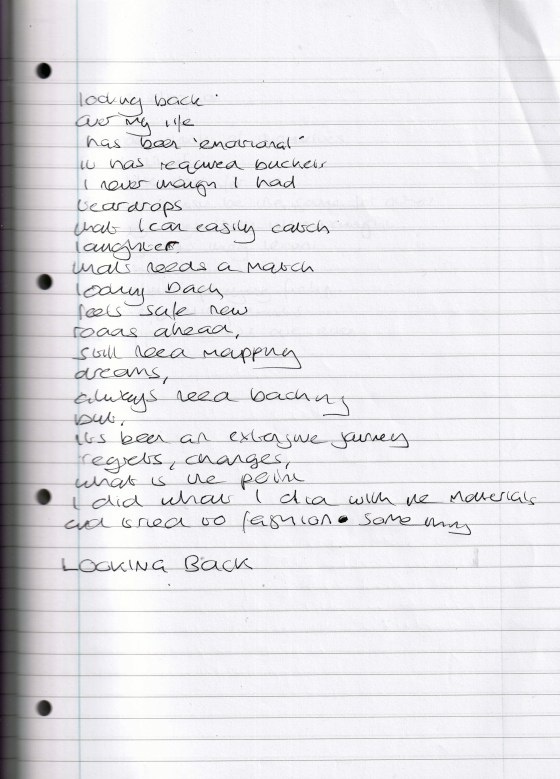 looking back
over my life
has been 'emotional'
it has required buckets
I never thought I had
teardrops
that I can easily catch
laughter
that needs a match
looking back
feels safe now
roads ahead,
still need mapping
dreams,
always need backing
but,
its been an extensive journey
regrets, changes,
what is the point
I did what I did with the materials
and tried to fashion some thing
LOOKING BACK